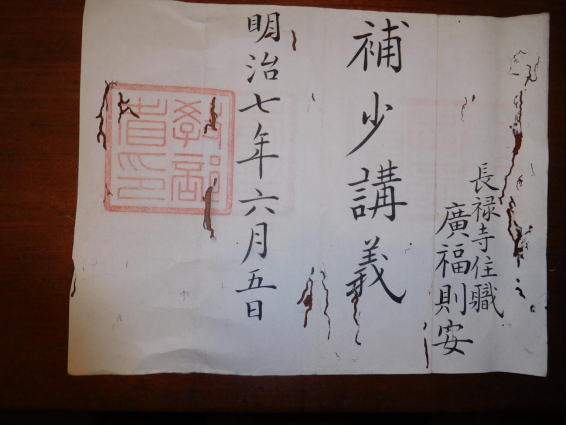 長禄寺住職
廣福則安
補少講義
明治七年六月五日
教部省印